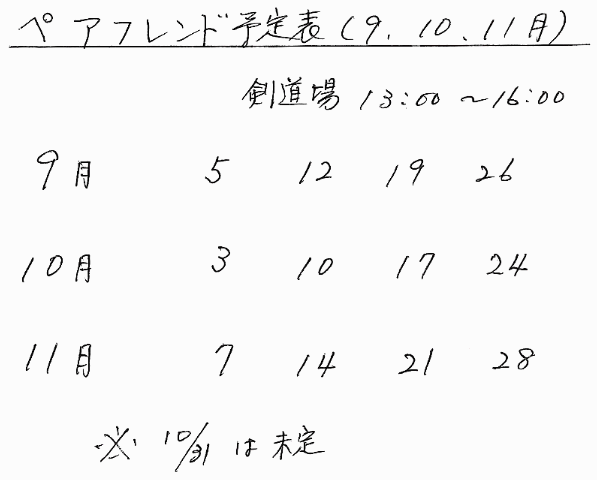 ペアフレンド予定表(9.10.11月)
剣道場 13:00 ~16:00
9月 5 12 19 26
10月 3 10 17 24
11月 7 14 21 28
※ 10/31 は未定